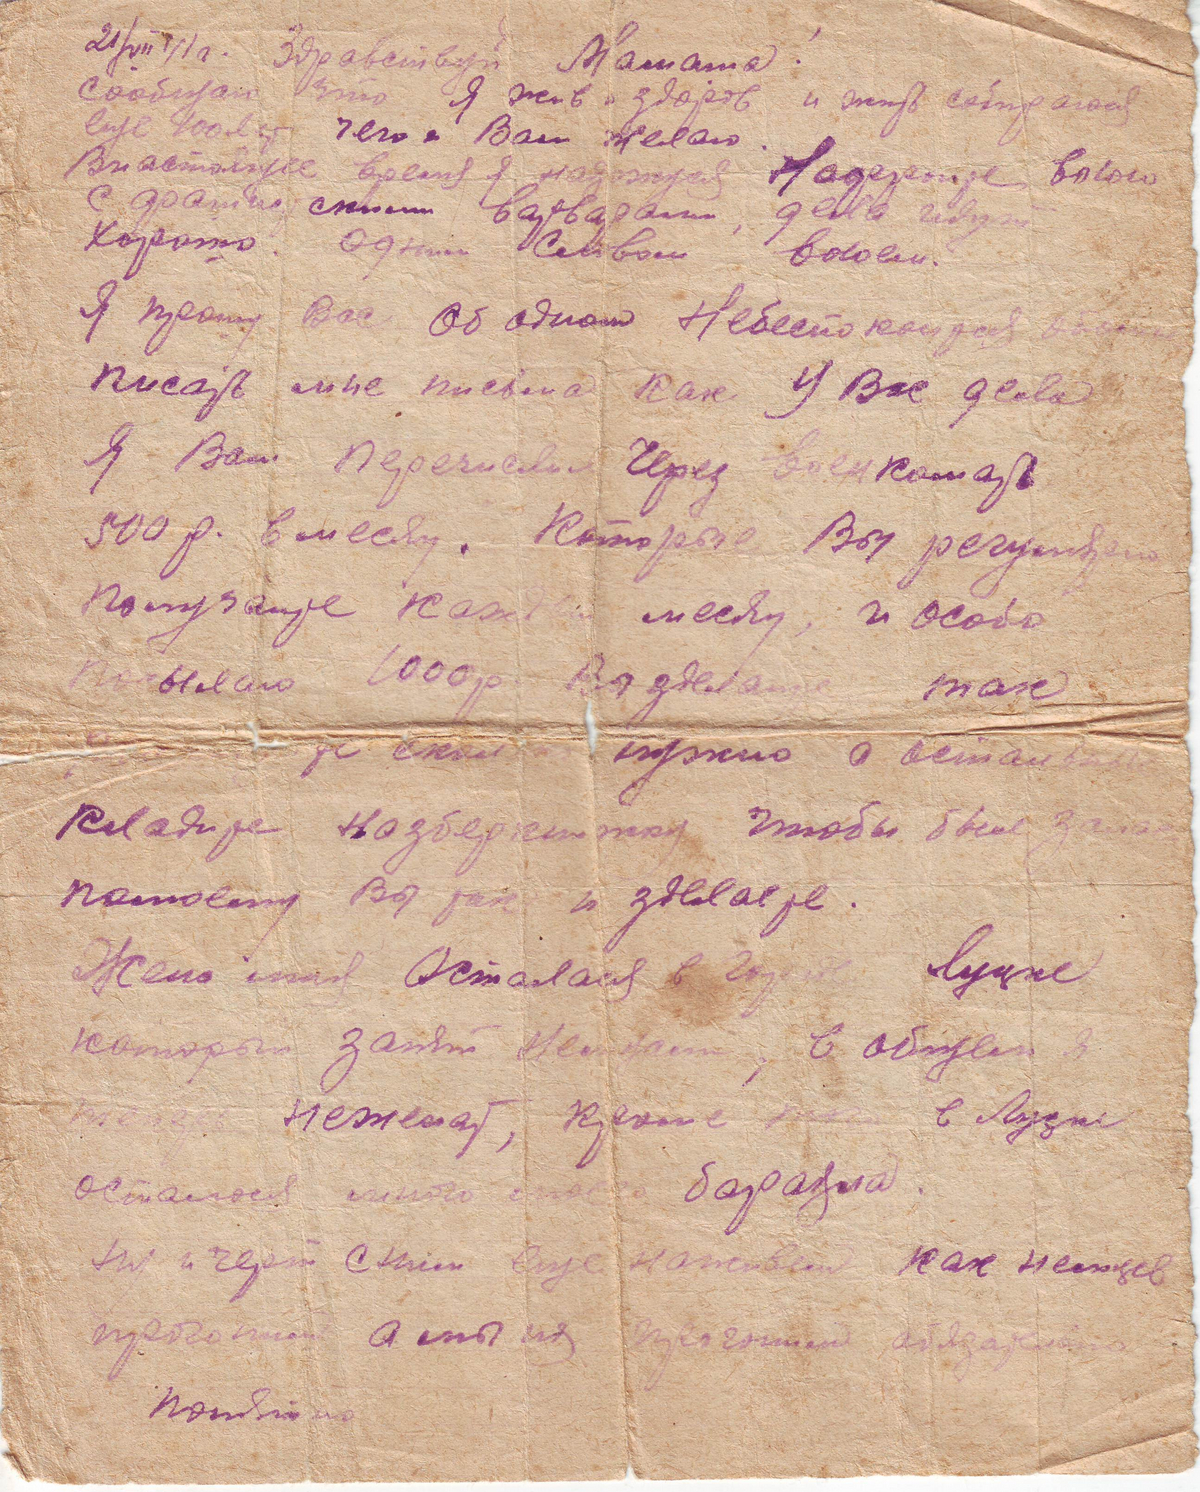 21/VII 41 г. Здравствуй Мамаша!
Сообщаю что я жив и здоров и жить собираюся
еще 100 лет чего и Вам желаю.
Внастоящее время я нахожуся На фронте воюю
с фашискими варварами, дела идут
хорошо. Одним Словом воюем.
Я прошу Вас Об одном Небеспокоится
писать мне письма как У Вас дела
Я Вам перечислил Через Военкомат
500 р. в месяц. Которые Вы регулярно
получайте каждый месяц, и особо
посылаю 1000 р. Вы зделайте так
сколько нужно а остальные
кладите назберкнижку чтобы был запас
помоему Вы так и зделаете.
Жена моя Осталася в городе Луцке
который занят Немцами, в общем я
теперь неженат, кроме того в Луцке
осталося много моего барахла.
Ну и черт с ним еще наживем как немцев
прогоним а мы их прогоним обязательно
Понятно